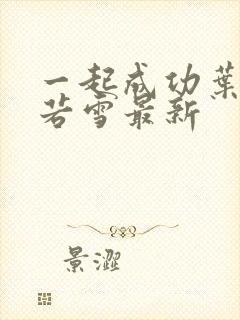 一起成功葉
若雪最新
景澀